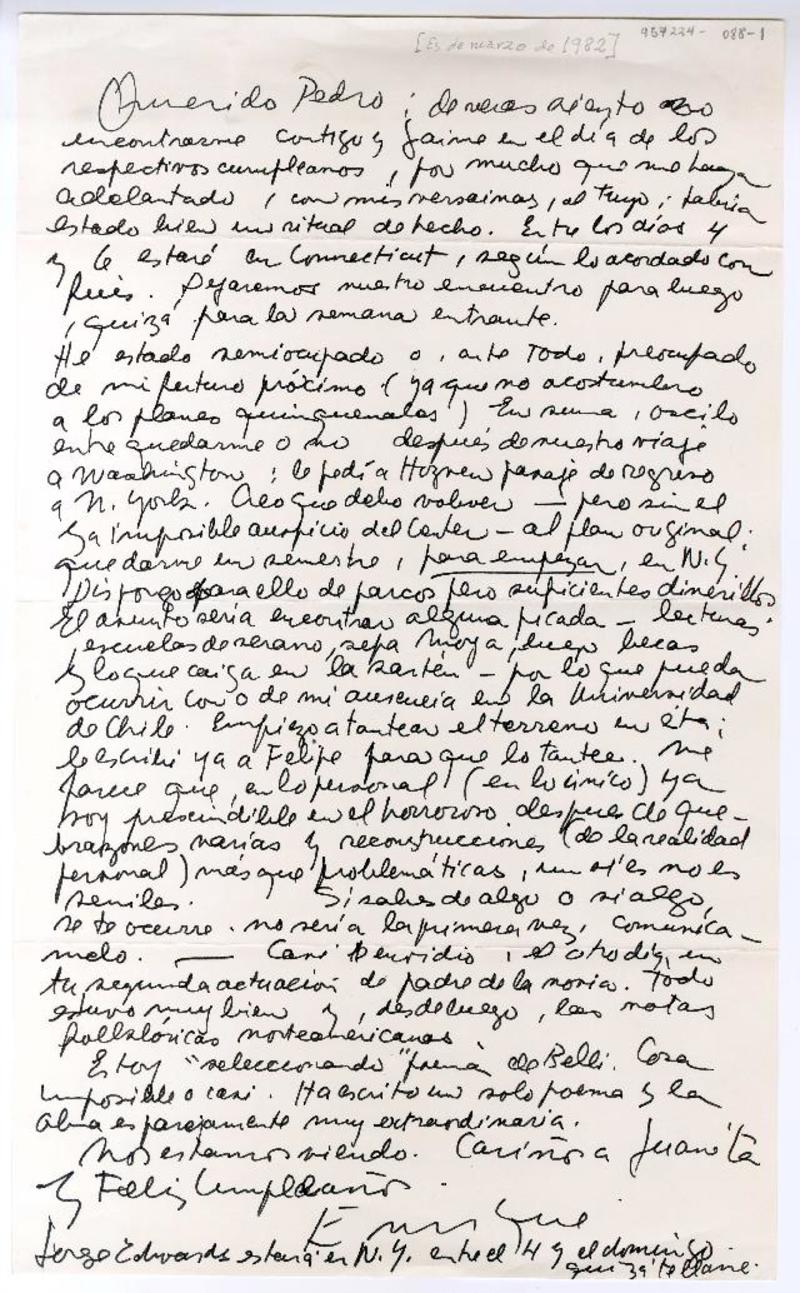 [Es de marzo de 1982] 957224- 088-1
Querido Pedro; de veras siento no
encontrarme contigo y Jaime en el día de los
respectivos cumpleaños, por mucho que me haya
adelantado, con mis versainas, al tuyo; habría
estado bien un ritual de hecho. Entre los días 4
y 6 estaré en Connecticut, según lo acordado con
. Dejaremos nuestro encuentro para luego
, quizá para la semana entrante.
He estado semiocupado o, ante todo, preocupado
de mi futuro próximo (ya que no acostumbro
a los planes quinquenales) En suma, oscilo
entre quedarme o no después de nuestro viaje
a Washington; le pedí a pasaje de regreso
a N. York. Creo que debo volver — pero sin el
ya imposible auspicio del Center — al plan original:
quedarme un semestre, para empezar, en N.Y.
Dispongo para ello de parcos pero suficientes dinerillos.
El asunto sería encontrar alguna picada — lecturas,
escuelas de verano, sepa Moya, luego becas
y lo que caiga en la sartén — por lo que pueda
ocurrir con o de mi ausencia en la Universidad
de Chile. Empiezo a tantear el terreno en ésta;
le escribí ya a Felipe para que lo tantee. Me
parece que, en lo personal (en lo único) ya
soy prescindible en el horroroso, después de que-
brazones varias y reconstrucciones (de la realidad
personal) más que problemáticas, un sí es no es
seniles. Si sabes de algo o si algo,
se te ocurre. no sería la primera vez, comunica-
melo. — Casi te envidio, el otro día, en
tu segunda actuación de padre de la novia. Todo
estuvo muy bien y, desde luego, las notas
folklóricas norteamericanas.
Estoy "seleccionando" de Belli. Cosa
imposible o casi. Ha escrito un solo poema y la
obra es parejamente muy extraordinaria.
Nos estamos viendo. Cariños a Juanita
y Feliz Cumpleaños.
Enrique
Jorge Edwards estará en N.Y. entre el 4 y el domingo.
quizá te llame.